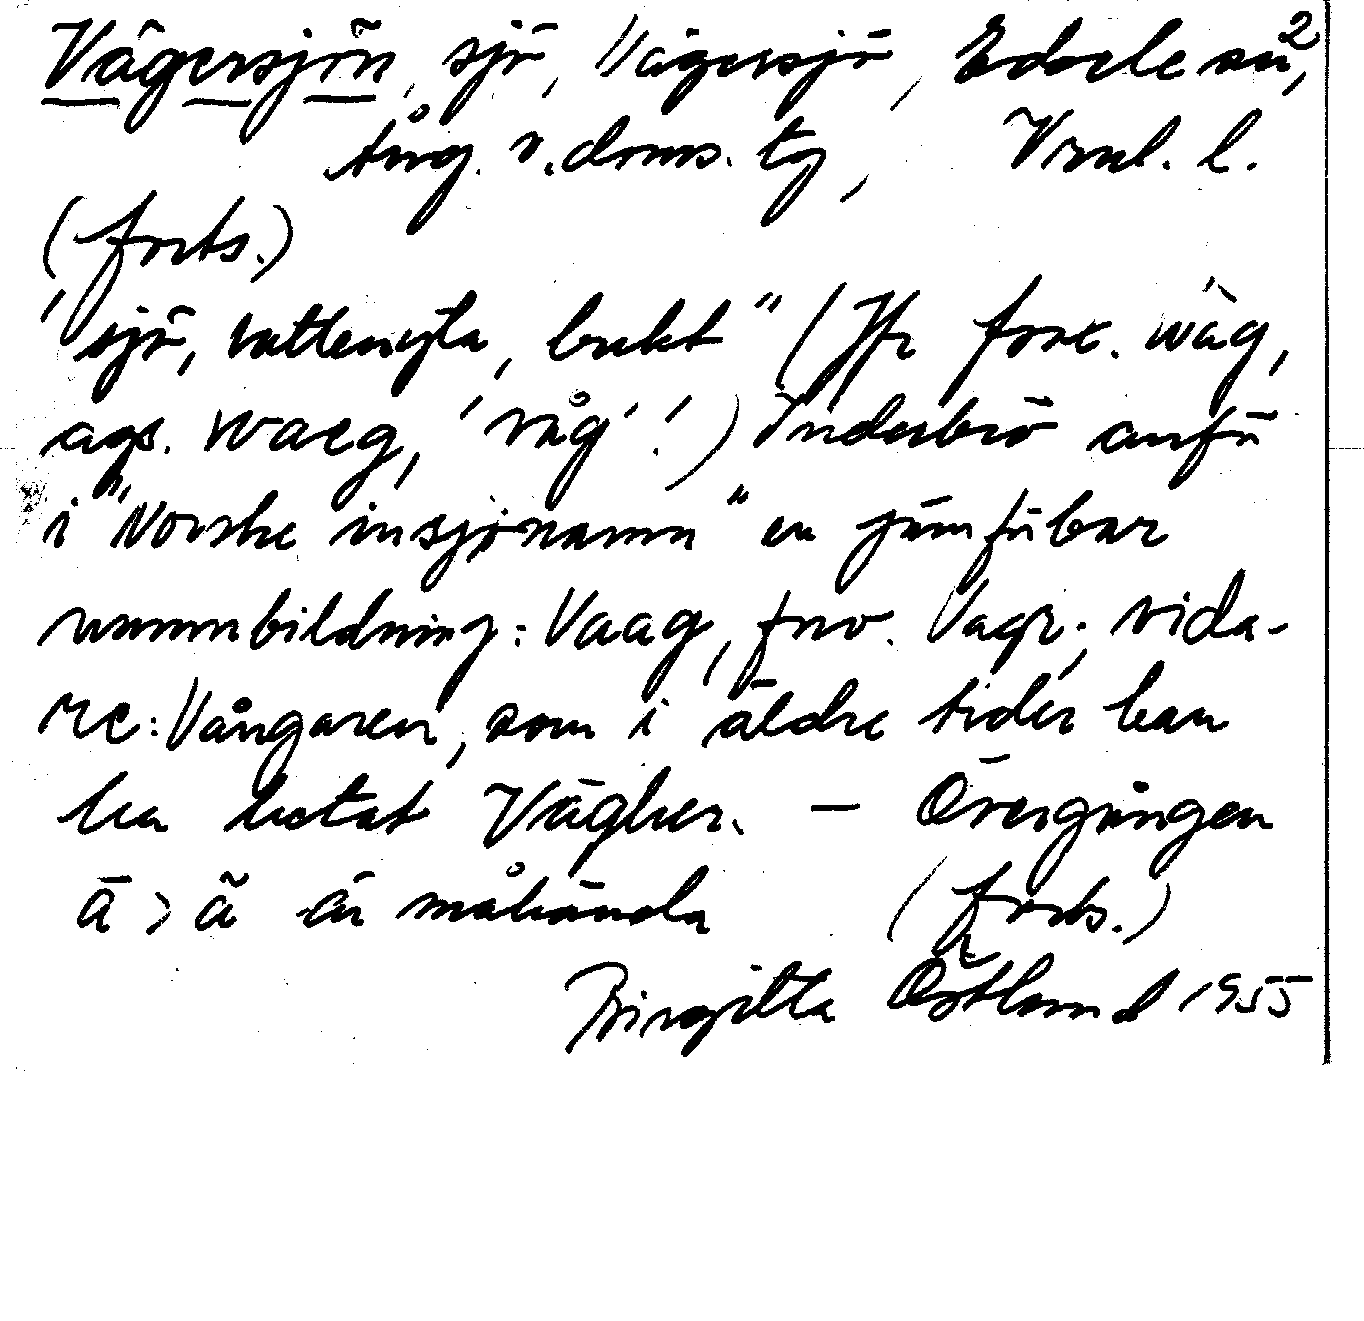 Vägersjön, sjö, Vägersjö, Edsele sn, 2
Ång. v. doms. tg, Vrml. l.
(forts.)
"sjö, vattenyta, bukt" (Jfr fsax. wāg,
ags. waeg, 'våg'.) Inderbiö anför
i "Norske insjönamn" en jämförbar
namnbildning: Vaag, fno. Vagr; vida-
re: Vångaren, som i äldre tider kan
ha hetat Vägher. — Övergången
ā > ä är måhända (forts.)
Birgitta Östlund 1955